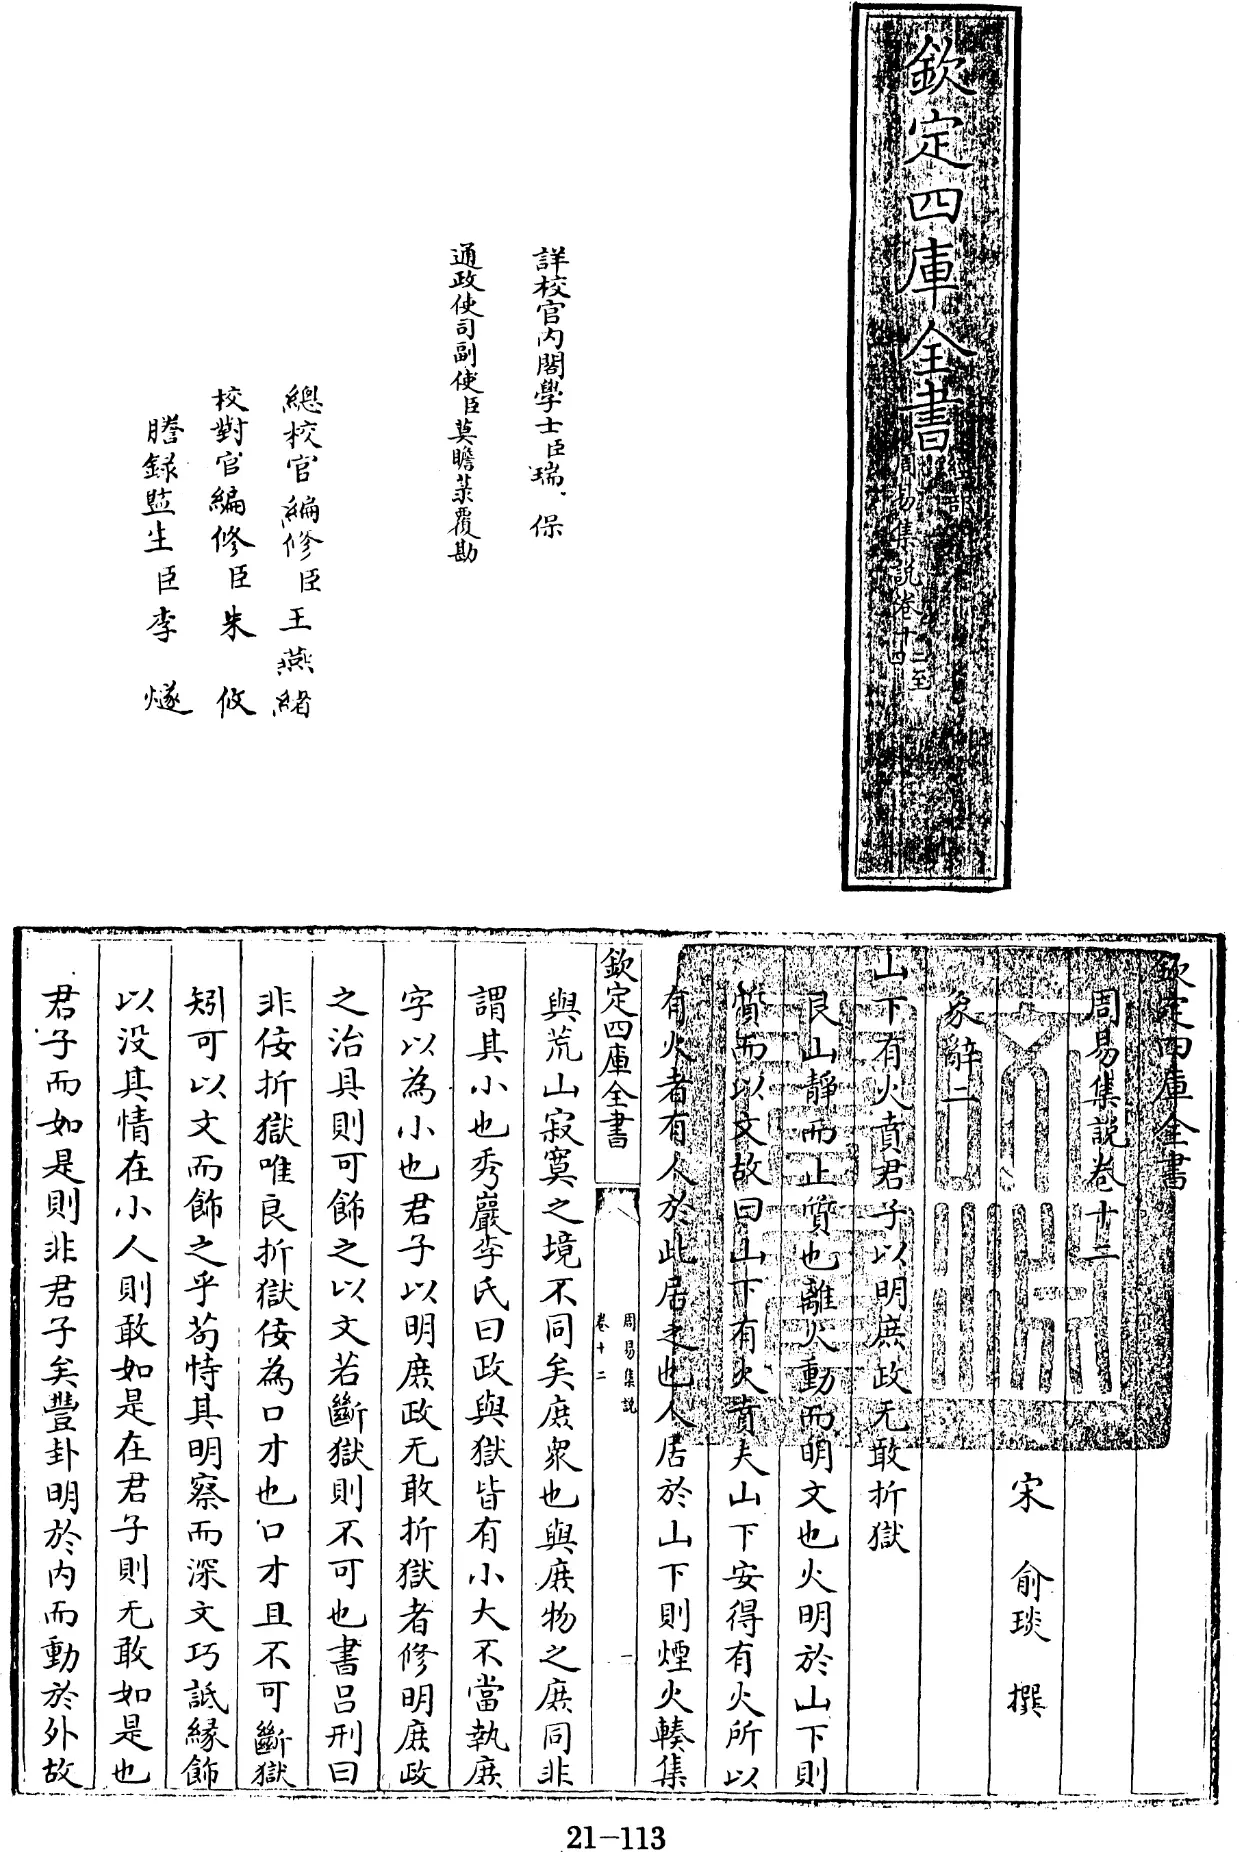 欽定四庫全書
經部
周易集說卷十二至
十四
詳校官內閣學士臣瑞保
通政使司副使臣莫瞻菉覆勘
總校官編修臣王燕緒
校對官編修臣朱攸
謄錄監生臣李燧
欽定四庫全書
周易集說卷十二
宋俞琰撰
象辭二
山下有火賁君子以明庶政无敢折獄
艮山靜而止質也離火動而明文也火明於山下則
質而以文故曰山下有火賁夫山下安得有火所以
有火者有人於此居之也人居於山下則煙火輳集
欽定四庫全書
周易集說
卷十二
一
與荒山寂寞之境不同矣庶衆也與庶物之庶同非
謂其小也秀巖李氏曰政與獄皆有小大不當執庶
字以為小也君子以明庶政无敢折獄者修明庶政
之治具則可飾之以文若斷獄則不可也書呂刑曰
非佞折獄唯良折獄佞為口才也口才且不可斷獄
矧可以文而飾之乎苟恃其明察而深文巧詆緣飾
以没其情在小人則敢如是在君子則无敢如是也
君子而如是則非君子矣豐卦明於內而動於外故
21-113